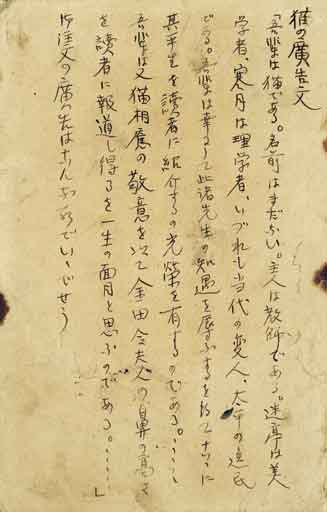 猫の廣告文
吾輩は猫である。名前はまだない。主人は教師である。迷亭は美
学者、寒月は理学者、いづれも当代の変人、太平の逸民
である。吾輩は幸にして此諸先生の知遇を辱ふするを得てこゝに
其平生を読者に紹介するの光栄を有するのである。……
吾輩は又猫相応の敬意を以て金田令夫人の鼻の高さ
を読者に報道し得るを一生の面目と思ふのである。……」
御注文の廣告はこんな形でいゝでせう